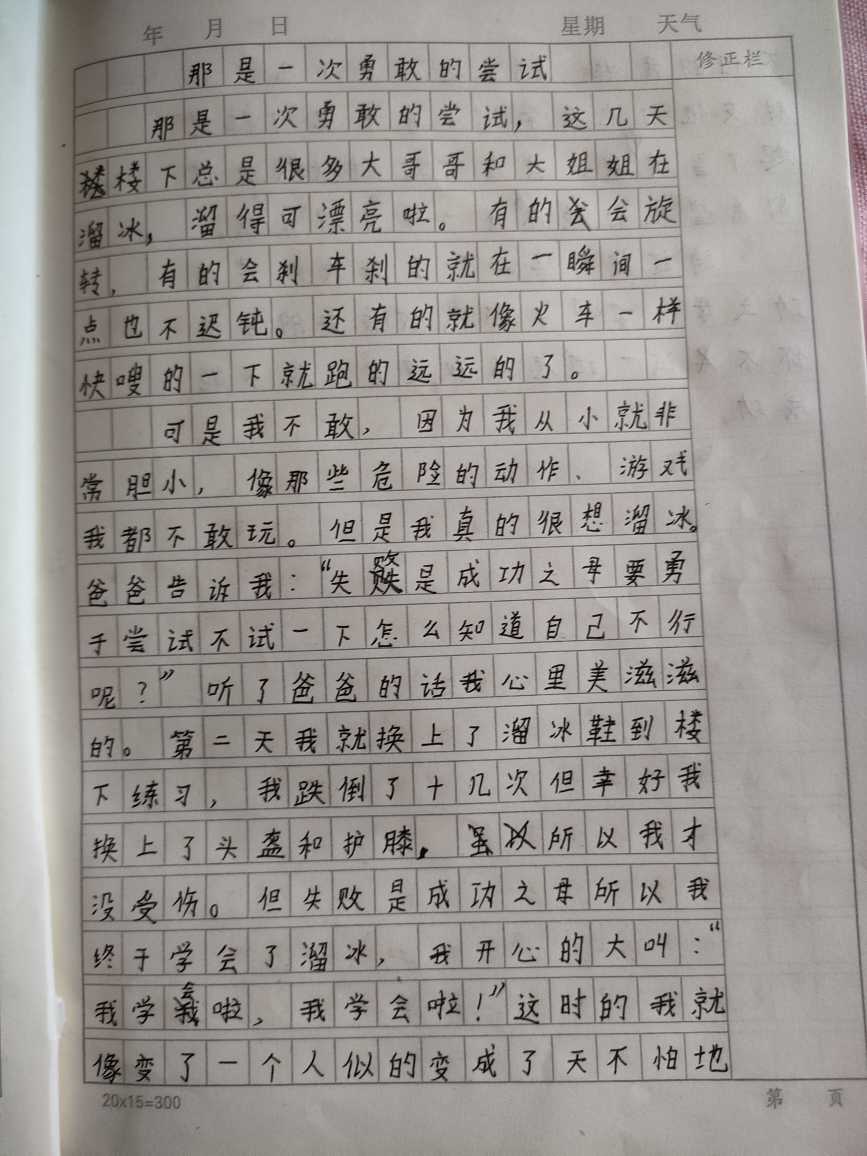 年 月 日 星期 天气
那是一次勇敢的尝试 修正栏
那是一次勇敢的尝试，这几天
楼下总是很多大哥哥和大姐姐在
溜冰，溜得可漂亮啦。有的会旋
转，有的会刹车刹的就在一瞬间一
点也不迟钝。还有的就像火车一样
快嗖的一下就跑的远远的了。
可是我不敢，因为我从小就非
常胆小，像那些危险的动作、游戏
我都不敢玩。但是我真的很想溜冰。
爸爸告诉我：“失败是成功之母要勇
于尝试不试一下怎么知道自己不行
呢？”听了爸爸的话我心里美滋滋
的。第二天我就换上了溜冰鞋到楼
下练习，我跌倒了十几次但幸好我
换上了头盔和护膝，所以我才
没受伤。但失败是成功之母所以我
终于学会了溜冰，我开心的大叫：“
我学会啦，我学会啦！”这时的我就
像变了一个人似的变成了天不怕地
20x15=300 第 页